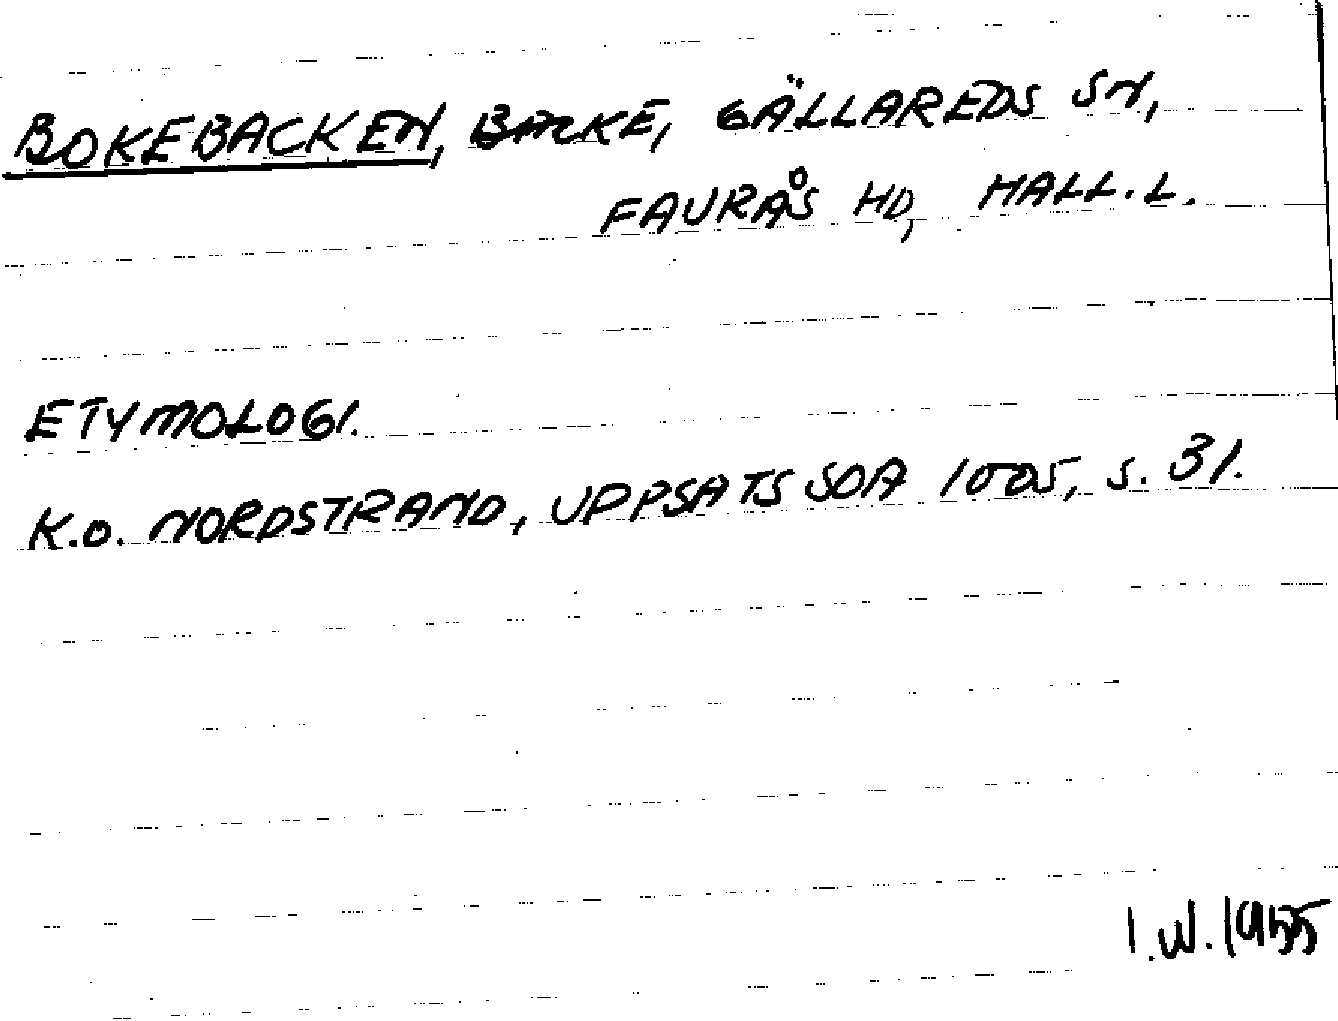 BOKEBACKEN, BACKE, GÄLLAREDS SN,
FAURÅS HD, HALL.L.
ETYMOLOGI.
K.O. NORDSTRAND, UPPSATS SOA 1005, S. 31.
I.W. 1955